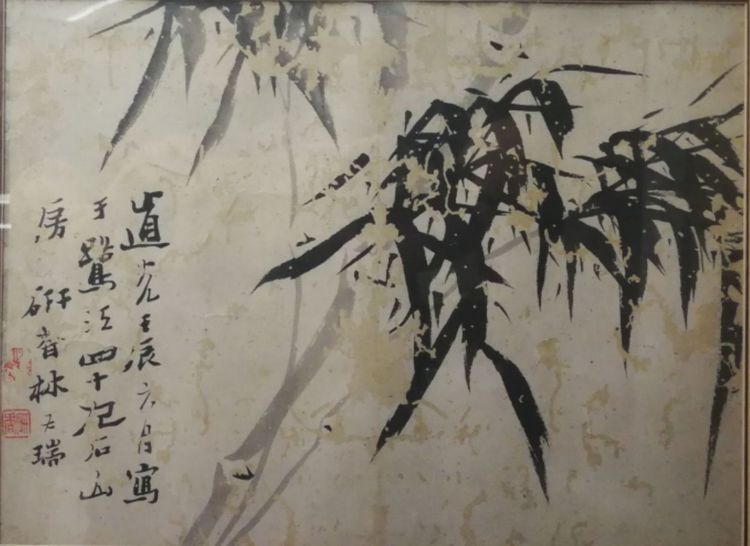 道光壬辰六月寫
于鷺江四十九石山
房 研香林天瑞